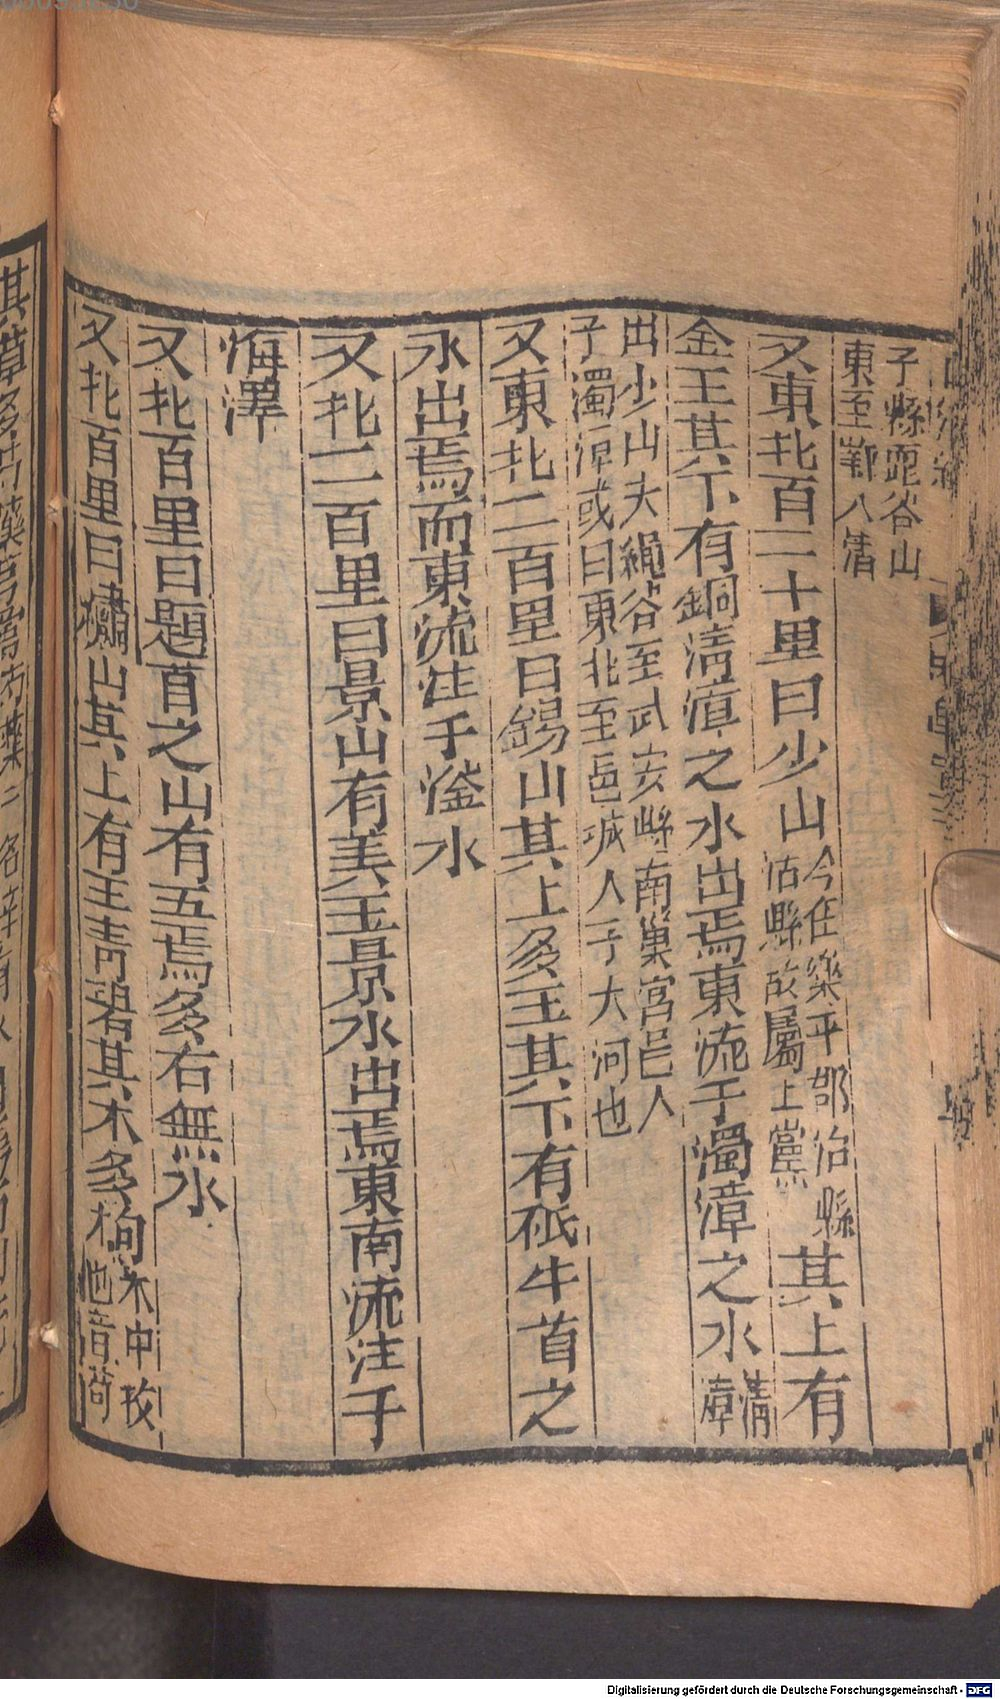 子縣䍃谷山
東至鄴入清
又東北百二十里曰少山今在樂平郡治縣
沾縣故屬上黨其上有
金玉其下有銅清漳之水出焉東流于濁漳之水清
漳
出少山大繩谷至武安縣南巢宮邑人
于濁漳或曰東北至邑城入于大河也
又東北二百里曰錫山其上多玉其下有砥牛首之
水出焉而東流注于滏水
又北二百里曰景山有美玉景水出焉東南流注于
海澤
又北百里曰題首之山有玉焉多石無水
又北百里曰繡山其上有玉青碧其木多栒木中枚
也音荀
Digitalisierung gefördert durch die Deutsche Forschungsgemeinschaft - DFG